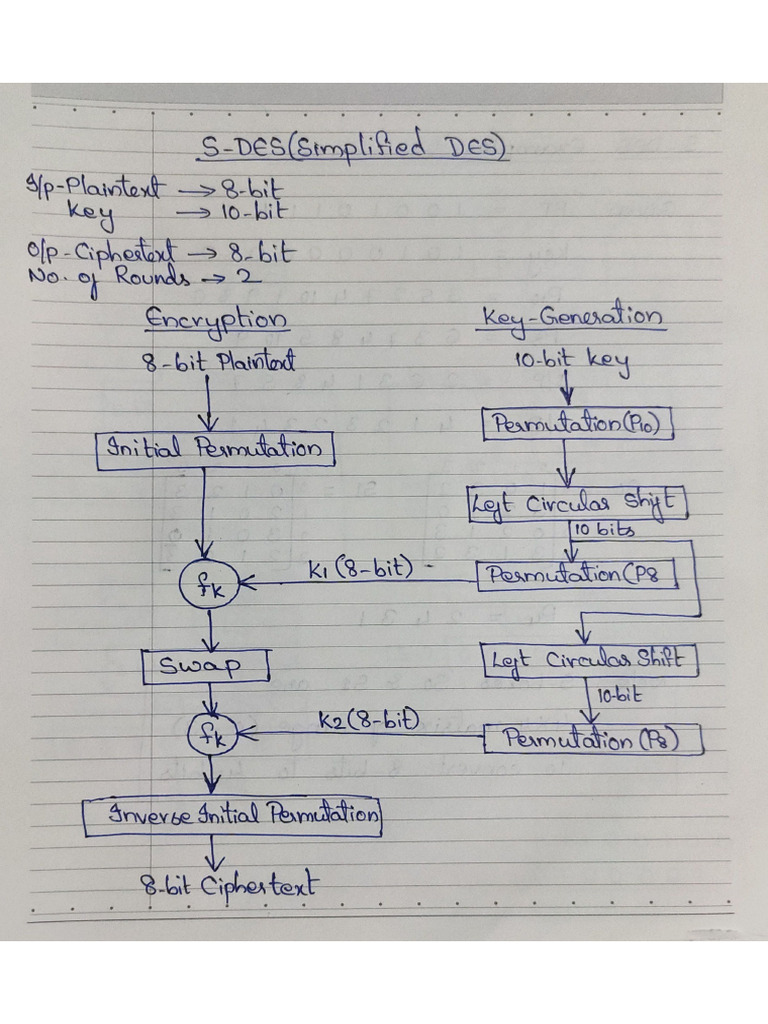 S-DES(Simplified DES)
I/p-Plaintext → 8-bit
Key → 10-bit
O/p-Ciphertext → 8-bit
No. of Rounds → 2
Encryption
8-bit Plaintext
Initial Permutation
fK
Swap
fK
Inverse Initial Permutation
8-bit Ciphertext
K1 (8-bit)
K2 (8-bit)
Key-Generation
10-bit key
Permutation(P10)
Left Circular Shift
10 bits
Permutation(P8
Left Circular Shift
10-bit
Permutation(P8)